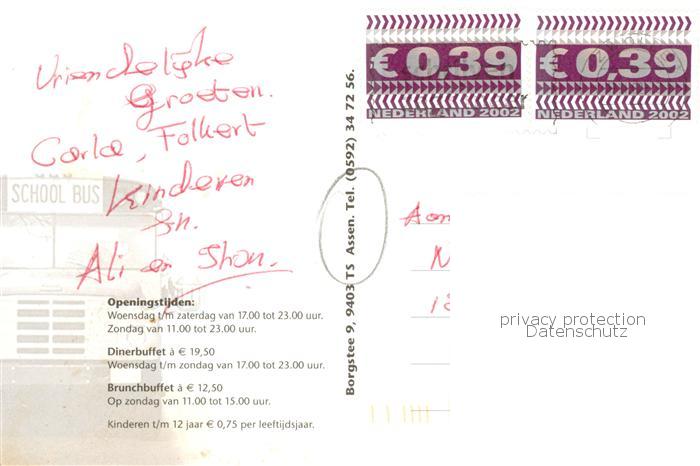 Vriendelijke
Groeten.
Carla, Folkert
Kinderen
en.
Ali en Thon.
SCHOOL BUS
Openingstijden:
Woensdag t/m zaterdag van 17.00 tot 23.00 uur.
Zondag van 11.00 tot 23.00 uur.
Dinerbuffet à € 19,50
Woensdag t/m zondag van 17.00 tot 23.00 uur.
Brunchbuffet à € 12,50
Op zondag van 11.00 tot 15.00 uur.
Kinderen t/m 12 jaar € 0,75 per leeftijdsjaar.
Borgstee 9, 9403 TS Assen. Tel. (0592) 34 72 56.
€ 0,39
NEDERLAND 2002
€ 0,39
NEDERLAND 2002
Aan
N
privacy protection
Datenschutz